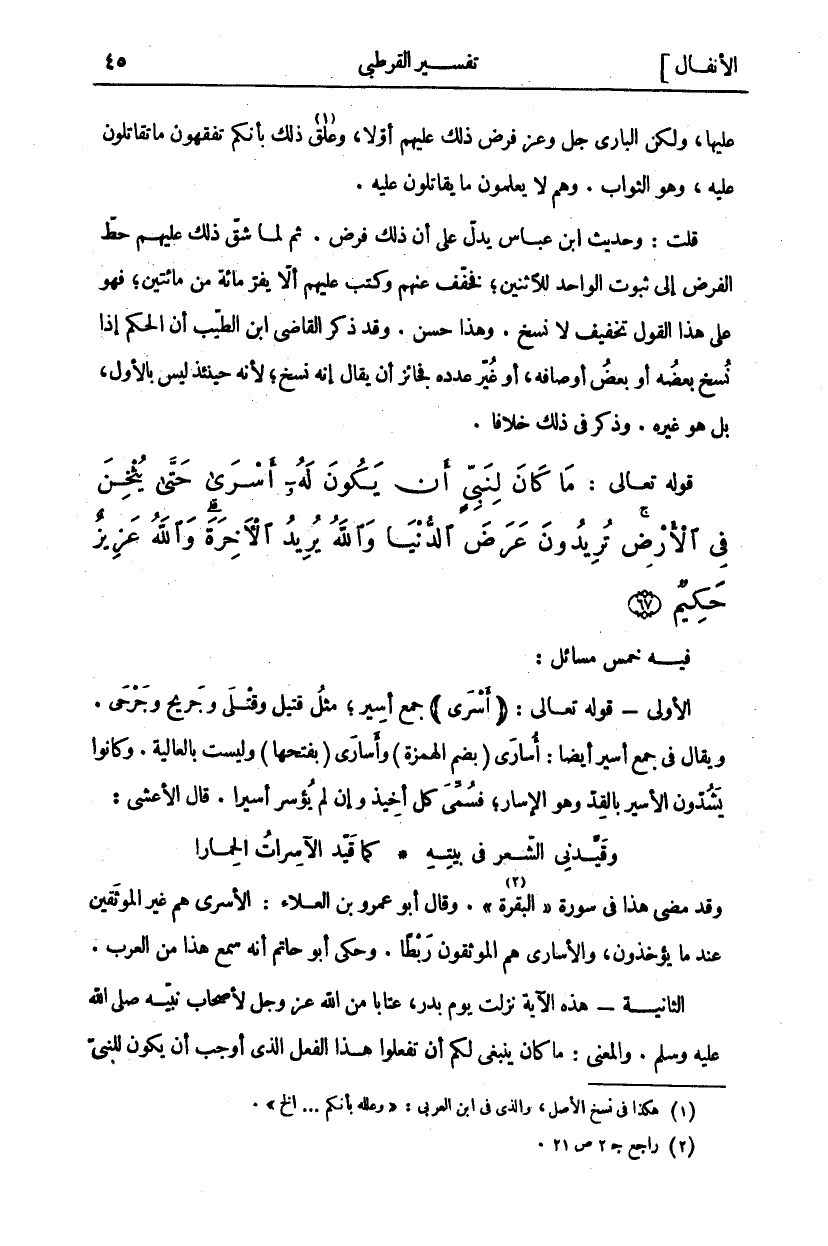 الأنفال] تفسير القرطبى ٤٥
عليها، ولكن البارى جل وعز فرض ذلك عليهم أوّلا، وعلّق(١) ذلك بأنكم تفقهون ما تقاتلون
عليه، وهو الثواب. وهم لا يعلمون ما يقاتلون عليه.
قلت: وحديث ابن عباس يدلّ على أن ذلك فرض. ثم لما شقّ ذلك عليهم حطّ
الفرض إلى ثبوت الواحد للآثنين؛ فخفّف عنهم وكتب عليهم ألّا يفرّ مائة من مائتين؛ فهو
على هذا القول تخفيف لا نسخ. وهذا حسن. وقد ذكر القاضى ابن الطيّب أن الحكم إذا
نُسخ بعضُه أو بعضُ أوصافه، أو غُيّر عدده فجائز أن يقال إنه نسخ؛ لأنه حينئذ ليس بالأول،
بل هو غيره. وذكر فى ذلك خلافا.
قوله تعالى: مَا كَانَ لِنَبِيٍّ أَن يَكُونَ لَهُۥٓ أَسْرَىٰ حَتَّىٰ يُثْخِنَ
فِى ٱلْأَرْضِ ۚ تُرِيدُونَ عَرَضَ ٱلدُّنْيَا وَٱللَّهُ يُرِيدُ ٱلْآخِرَةَ ۗ وَٱللَّهُ عَزِيزٌ
حَكِيمٌ ﴿٦٧﴾
فيه خمس مسائل:
الأولى — قوله تعالى: ﴿أَسْرَى﴾ جمع أسير؛ مثلُ قتيل وقَتْلَى وجَريح وجَرْحَى.
ويقال فى جمع أسير أيضا: أُسارَى (بضم الهمزة) وأَسارَى (بفتحها) وليست بالعالية. وكانوا
يَشُدّون الأسير بالقِدّ وهو الإسار؛ فسُمِّىَ كل أخِيذ وإن لم يُؤسر أسيرا. قال الأعشى:
وقيَّدنِى الشّعر فى بيتِهِ * كما قَيّد الآسِراتُ الحِمارا
وقد مضى هذا فى سورة «البقرة(٢)». وقال أبو عمرو بن العلاء: الأسرى هم غير الموثَقين
عند ما يؤخذون، والأسارى هم الموثقون رَبْطًا. وحكى أبو حاتم أنه سمع هذا من العرب.
الثانية — هذه الآية نزلت يوم بدر، عتابا من الله عز وجل لأصحاب نبيّه صلى الله
عليه وسلم. والمعنى: ما كان ينبغى لكم أن تفعلوا هذا الفعل الذى أوجب أن يكون للنبىّ
(١) هكذا فى نسخ الأصل، والذى فى ابن العربى: «وعلله بأنكم ... الخ».
(٢) راجع ج ٢ ص ٢١.